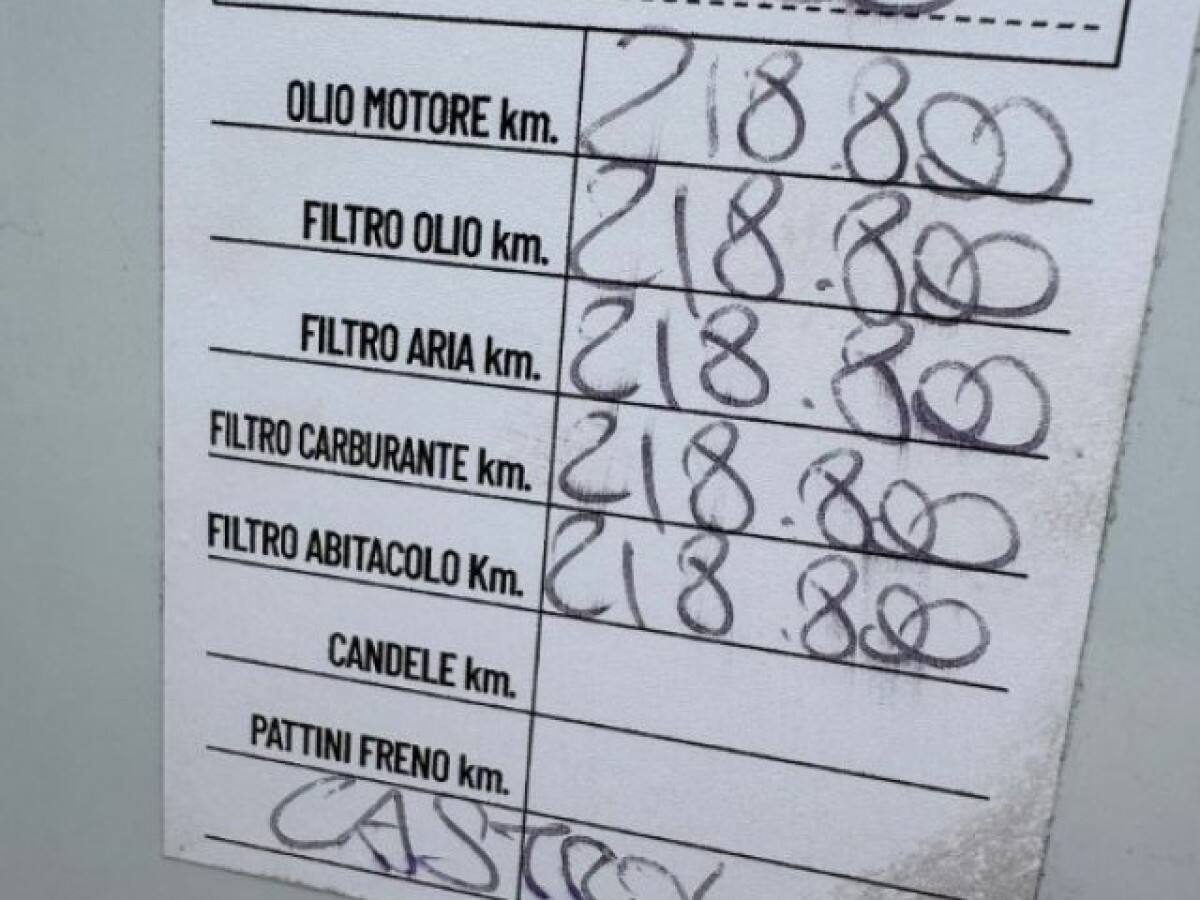 OLIO MOTORE km. 218.800
FILTRO OLIO km. 218.800
FILTRO ARIA km. 218.800
FILTRO CARBURANTE km. 218.800
FILTRO ABITACOLO Km. 218.800
CANDELE km.
PATTINI FRENO km.
CASTROL